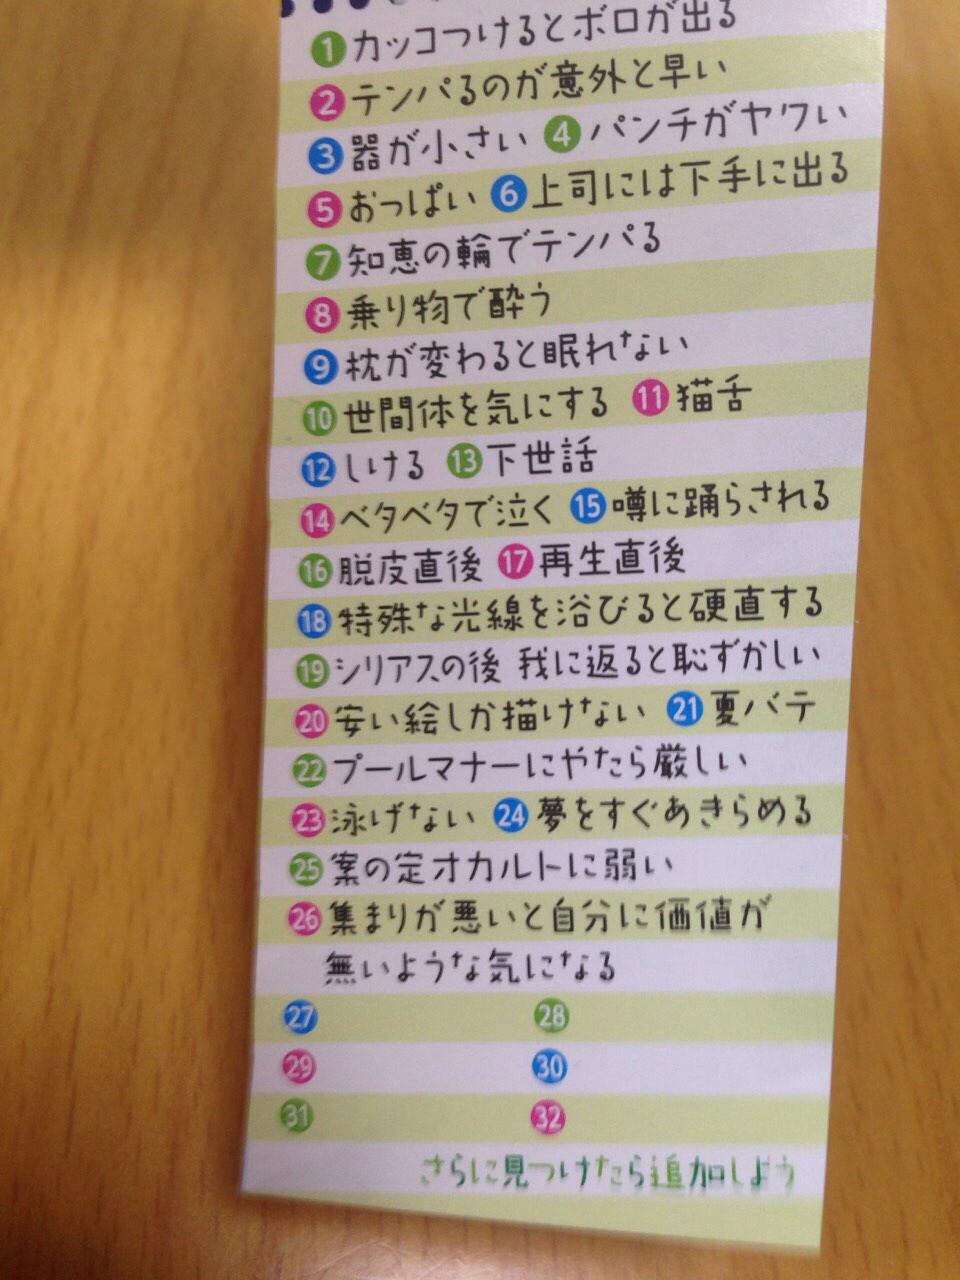 1 カッコつけるとボロが出る
2 テンパるのが意外と早い
3 器が小さい 4 パンチがヤワい
5 おっぱい 6 上司には下手に出る
7 知恵の輪でテンパる
8 乗り物で酔う
9 枕が変わると眠れない
10 世間体を気にする 11 猫舌
12 しける 13 下世話
14 ベタベタで泣く 15 噂に踊らされる
16 脱皮直後 17 再生直後
18 特殊な光線を浴びると硬直する
19 シリアスの後 我に返ると恥ずかしい
20 安い絵しか描けない 21 夏バテ
22 プールマナーにやたら厳しい
23 泳げない 24 夢をすぐあきらめる
25 案の定オカルトに弱い
26 集まりが悪いと自分に価値が
無いような気になる
27 28
29 30
31 32
さらに見つけたら追加しよう